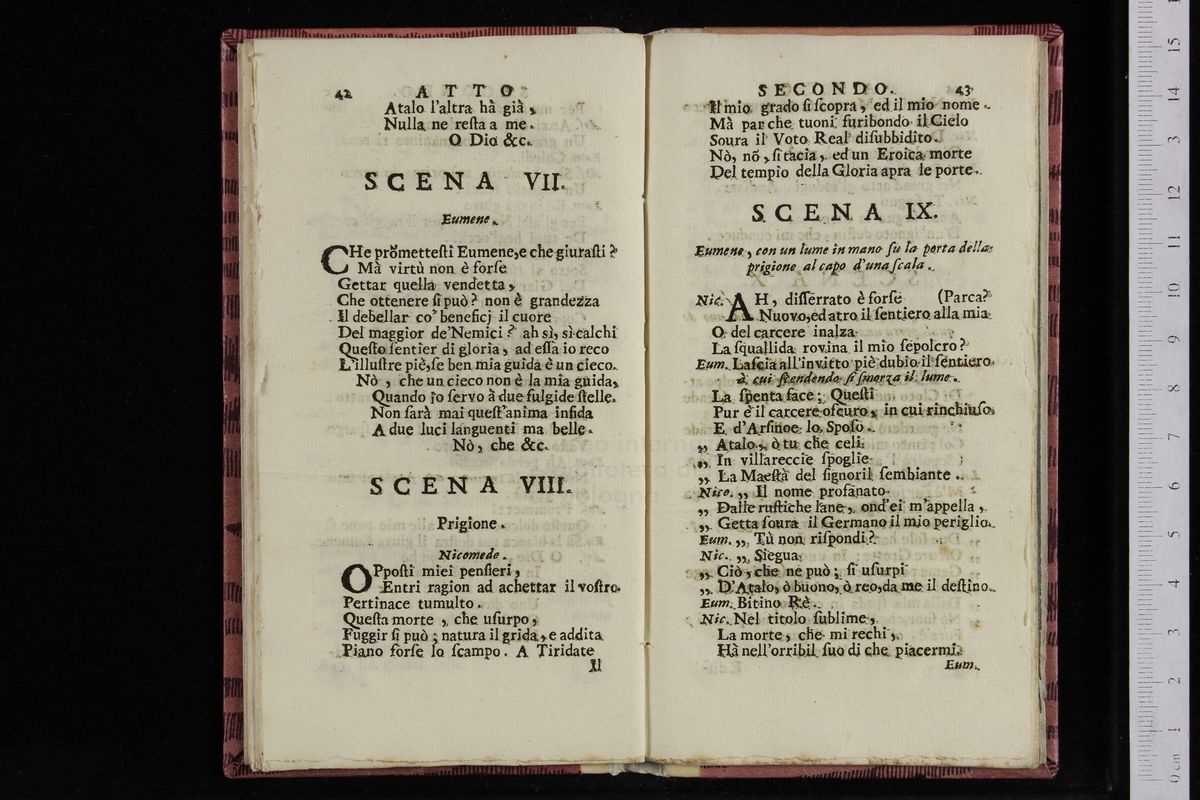 42 ATTO
Atalo l'altra hà già,
Nulla ne reſta a me.
O Dio &c.
SCENA VII.
Eumene.
CHe prõmetteſti Eumene, e che giuraſti?
Mà virtù non è forſe
Gettar quella vendetta,
Che ottenere ſi può? non è grandezza
Il debellar co' beneficj il cuore
Del maggior de' Nemici? ah sì, sì calchi
Queſto ſentier di gloria, ad eſſa io reco
L'illuſtre piè, ſe ben mia guida è un cieco.
Nò, che un cieco non è la mia guida,
Quando io ſervo à due fulgide ſtelle.
Non ſarà mai queſt'anima infida
A due luci languenti ma belle.
Nò, che &c.
SCENA VIII.
Prigione.
Nicomede.
OPpoſti miei penſieri,
Entri ragion ad achettar il voſtro
Pertinace tumulto.
Queſta morte, che uſurpo,
Fuggir ſi può; natura il grida, e addita
Piano forſe lo ſcampo. A Tiridate
Il
SECONDO. 43
Il mio grado ſi ſcopra, ed il mio nome.
Mà par che tuoni furibondo il Cielo
Soura il Voto Real diſubbidito.
Nò, nõ, ſi tacia, ed un Eroica morte
Del tempio della Gloria apra le porte.
SCENA IX.
Eumene, con un lume in mano ſu la porta della
prigione al capo d'una ſcala.
Nic. AH, diſſerrato è forſe (Parca?
Nuovo, ed atro il ſentiero alla mia
O del carcere inalza
La ſquallida rovina il mio ſepolcro?
Eum. Laſcia all'invitto piè dubio il ſentiero
à cui ſcendendo ſi ſmorza il lume.
La ſpenta face; Queſti
Pur è il carcere oſcuro, in cui rinchiuſo
E d'Arſinoe lo Spoſo.
„ Atalo, ò tu che celi
„ In villareccie ſpoglie
„ La Maeſtà del ſignoril ſembiante.
Nico. „ Il nome profanato
„ Dalle ruſtiche lane, ond'ei m'appella,
„ Getta ſoura il Germano il mio periglio.
Eum. „ Tù non riſpondi?
Nic. „ Siegua
„ Ciò, che ne può; ſi uſurpi
„ D'Atalo, ò buono, ò reo, da me il deſtino.
Eum. Bitino Rè.
Nic. Nel titolo ſublime,
La morte, che mi rechi,
Hà nell'orribil ſuo di che piacermi.
Eum.